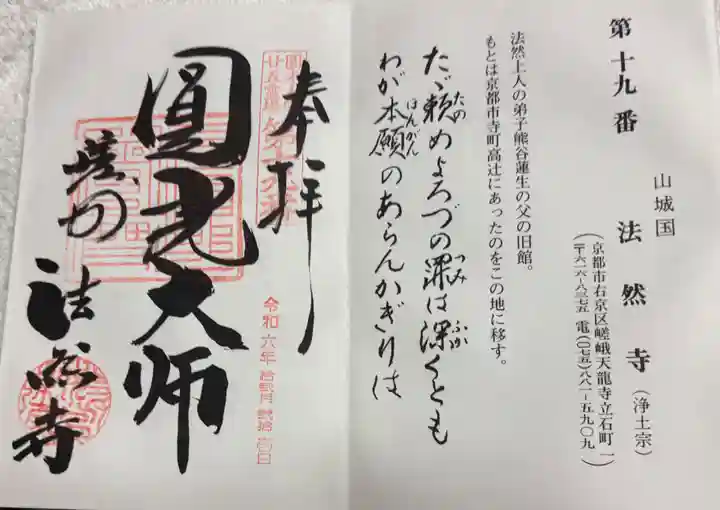 第十九番
山城国
法然寺(浄土宗)
(京都市右京区嵯峨天龍寺立石町一
〒六一六-八三七五 電(〇七五)八八一-五九〇九)
法然上人の弟子熊谷蓮生の父の旧館。
もとは京都市寺町高辻にあったのをこの地に移す。
たゞ頼めよろづの罪は深くとも
たの
つみ
ふか
わが本願のあらんかぎりは
ほんがん
奉拝
令和六年
圓光大師
嵯峨
法然寺